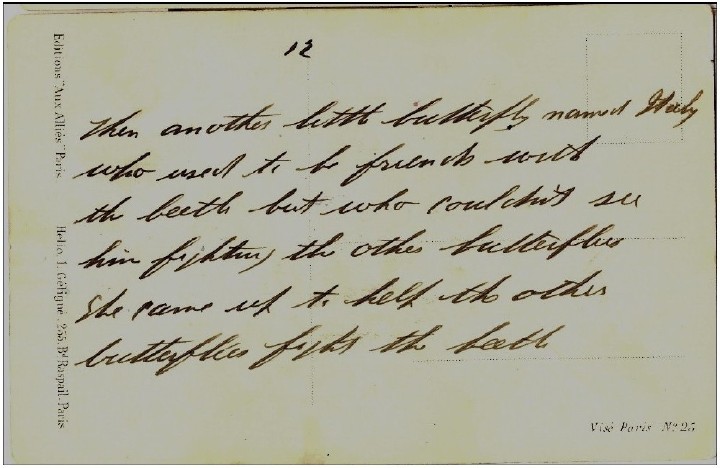 12
Then another little butterfly named Italy
who used to be friends with
the beetle but who couldn't see
him fighting the other butterflies
She came up to help the other
butterflies fight the beetle
Editions "Aux Alliés" Paris.
Helio. L. Géligné. 255, Bd Raspail-Paris
Visé Paris Nº 25